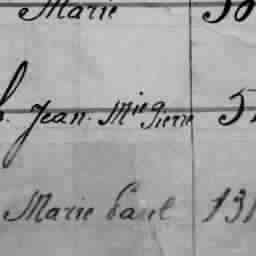 Marie 50
h. Jean-Mie Pierre 51
Marie Paul 131